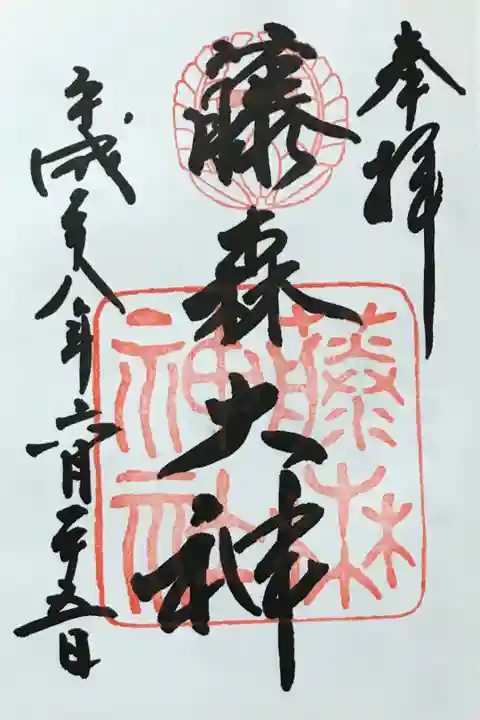 奉拝
藤森大神
平成二十八年六月二十五日
藤森
神社